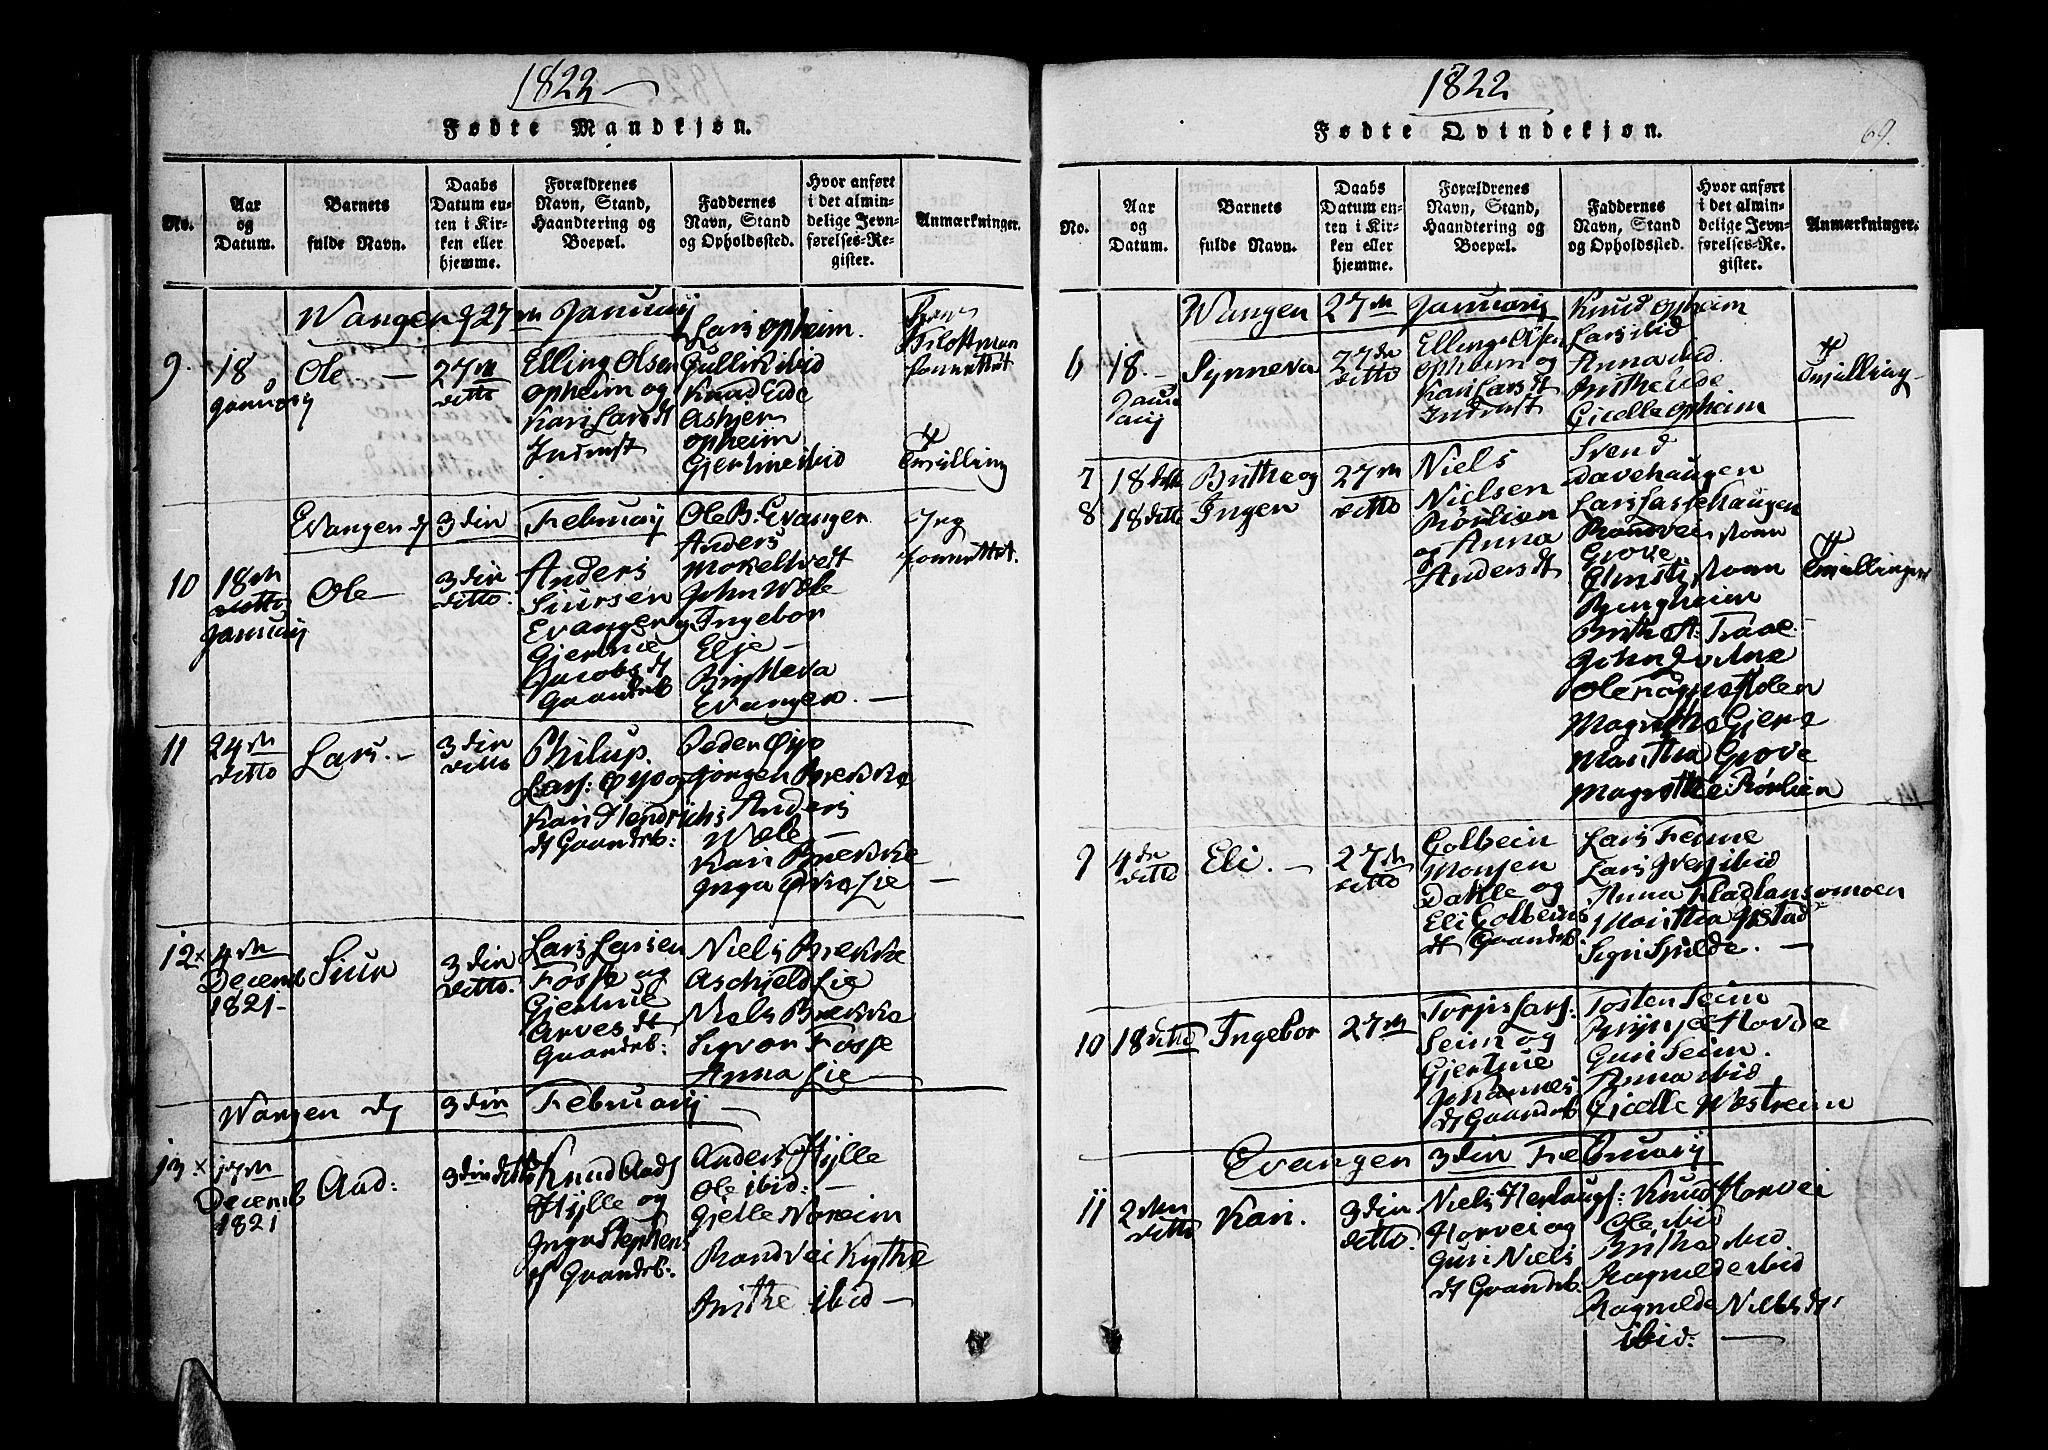 1822
Fødte Mandkjøn.
No.
Aar
og
Datum.
Barnets
fulde Navn.
Daabs
Datum en-
ten i Kir-
ken eller
hjemme.
Forældrenes
Navn, Stand,
Haandtering og
Boepæl.
Faddernes
Navn, Stand
og Opholdssted.
Hvor anført
i det almin-
delige Jevn-
førelses-Re-
gister.
Anmærkninger.
Wangen d 27de January
9.
18
January
Ole —
27de
ditto
Elling Olsen
Opheim og
Kari Larsdt
Lars Opheim.
Gullik ibid
Knud Eide
Asbjør
Opheim
Gjertrue ibid
Tvilling
Evangen d 3die February
10
18de
ditto
January
Ole —
3die
ditto.
Anders
Siursen
Evanger og
Gjertrue
Jacobsdt
Gaardeb
Ole B. Evanger
Anders
John Wæle
Ingebor
Elje —
Brytteva
Evanger. —
11
24de
ditto
Lars. —
3die
ditto
Philup.
Lars: Øye og
Kari Hendrichs
dt Gaardeb:
Peder Øye
Jørgen Brekke
Anders
Wæle —
Kari Brekke
Inga Lie —
12 x
4de
Decemb
1821 —
Siur
3die
ditto.
Lars Larsen
Fosse og
Gjertrue
Arvesdt
Gaardeb:
Niels Brekke
Aschjeld Lie
Niels Brekke
Syvor Fosse
Anna Lie —
Wangen d 3die February
13 x
17de
Decemb
1821
Aad:
3die ditto
Knud Aads
Hylle og
Inga Stephens
dt Gaardeb:
Anders Hylle
Ole ibid: —
Gjelle Noreim
Randvei Kythe
Brithe ibid —
1822
69.
Fødte Qvindekjøn.
No.
Aar
og
Datum.
Barnets
fulde Navn.
Daabs
Datum en-
ten i Kir-
ken eller
hjemme.
Forældrenes
Navn, Stand,
Haandtering og
Boepæl.
Faddernes
Navn, Stand
og Opholdssted.
Hvor anført
i det almin-
delige Jevn-
førelses-Re-
gister.
Anmærkninger.
Wangen 27de January
6
18. —
January
Synneva
27de
ditto
Elling Olsen
Opheim og
Kari Larsdt
Knud Opheim
Lars ibid
Anna ibid
Brithe Eide
Gicelle Opheim
Tvilling —
7
18 ditto
Brithe og
8
18 ditto
Ingen
27de
ditto
Niels
Nielsen
Rørlien
og Anna
Andersdt
Svend
Davehaugen
Lars Lassehaugen
Randvei
Grove
Bergheim
Brithe A: Traae
John
Ole
Magrethe Gjerе
Maritha Grove
Magrethe Rørlien
Tvillinger
9
4de
ditto
Eli. —
27de
ditto
Colbein
Monsen
Dahle og
Eli Colbeins
dt Gaardeb.
Lars Femme
Lars ibid
Anna
Maritha
Sigri Spilde. —
10
18 ditto
Ingebor
27de
Torgis Lars:
Seim og
Gjertrue
Johannes
dt Gaardeb
Tosten Seim
Brynje Horde
Guri Seim.
Anna ibid
Gicelle Westreim
Evangen 3die February
11
2den
ditto
Kari.
3die
ditto.
Niels Herlaugs:
Horvei og
Guri Niels
dt Gaardeb.
Knud Horvei
Ole ibid
Britha ibid
Ragnilde ibid
Ragnilde Nielsdt
ibid: —